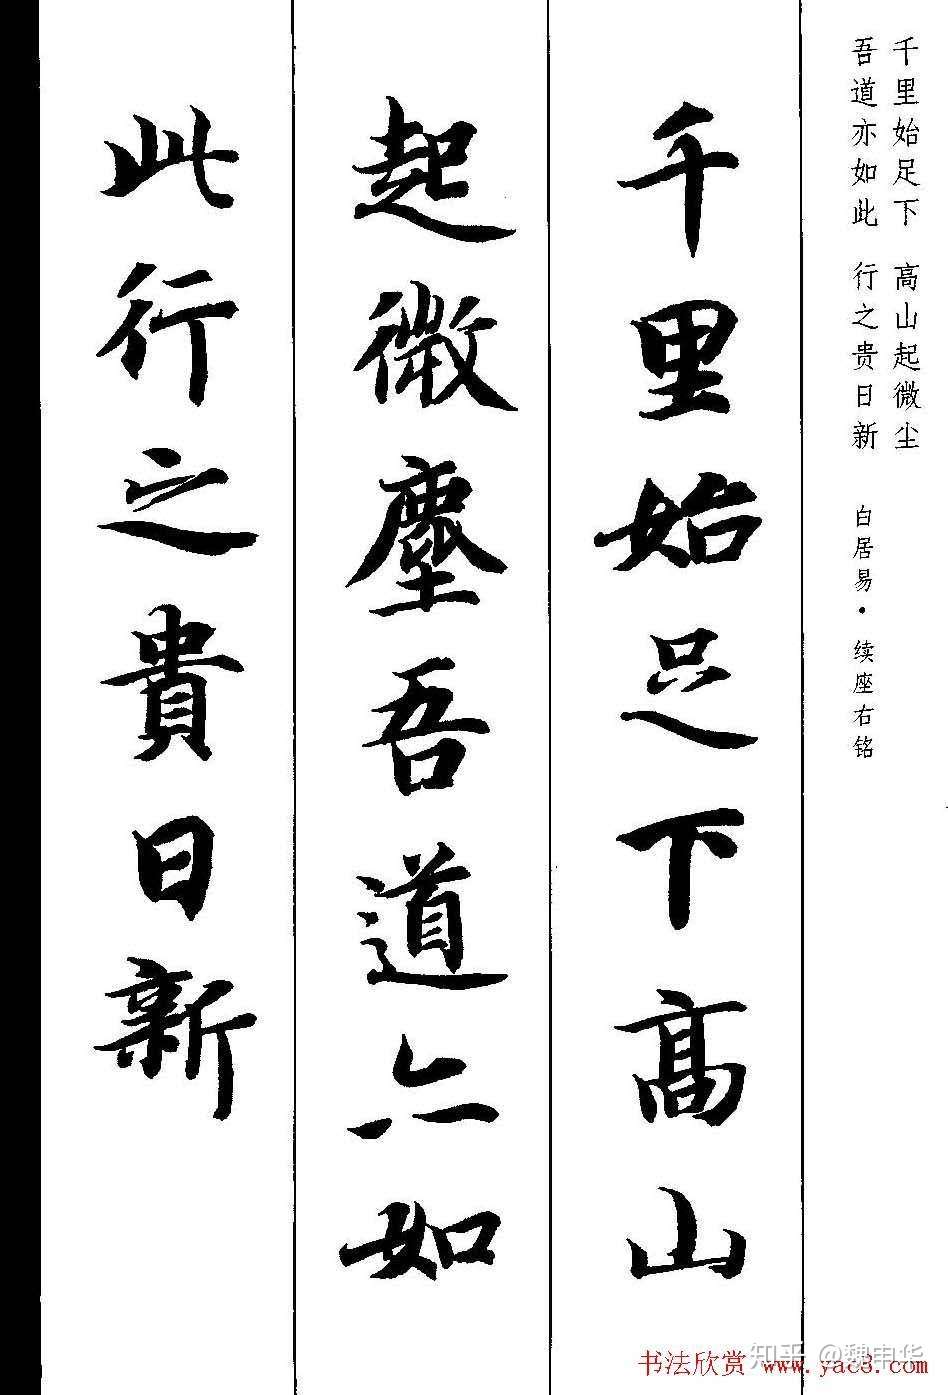 千里始足下 高山起微尘
吾道亦如此 行之贵日新
白居易·续座右铭
千里始足下高山
起微塵吾道亦如
此行之貴日新
书法欣赏 www.yac3.com
知乎 @魏申华